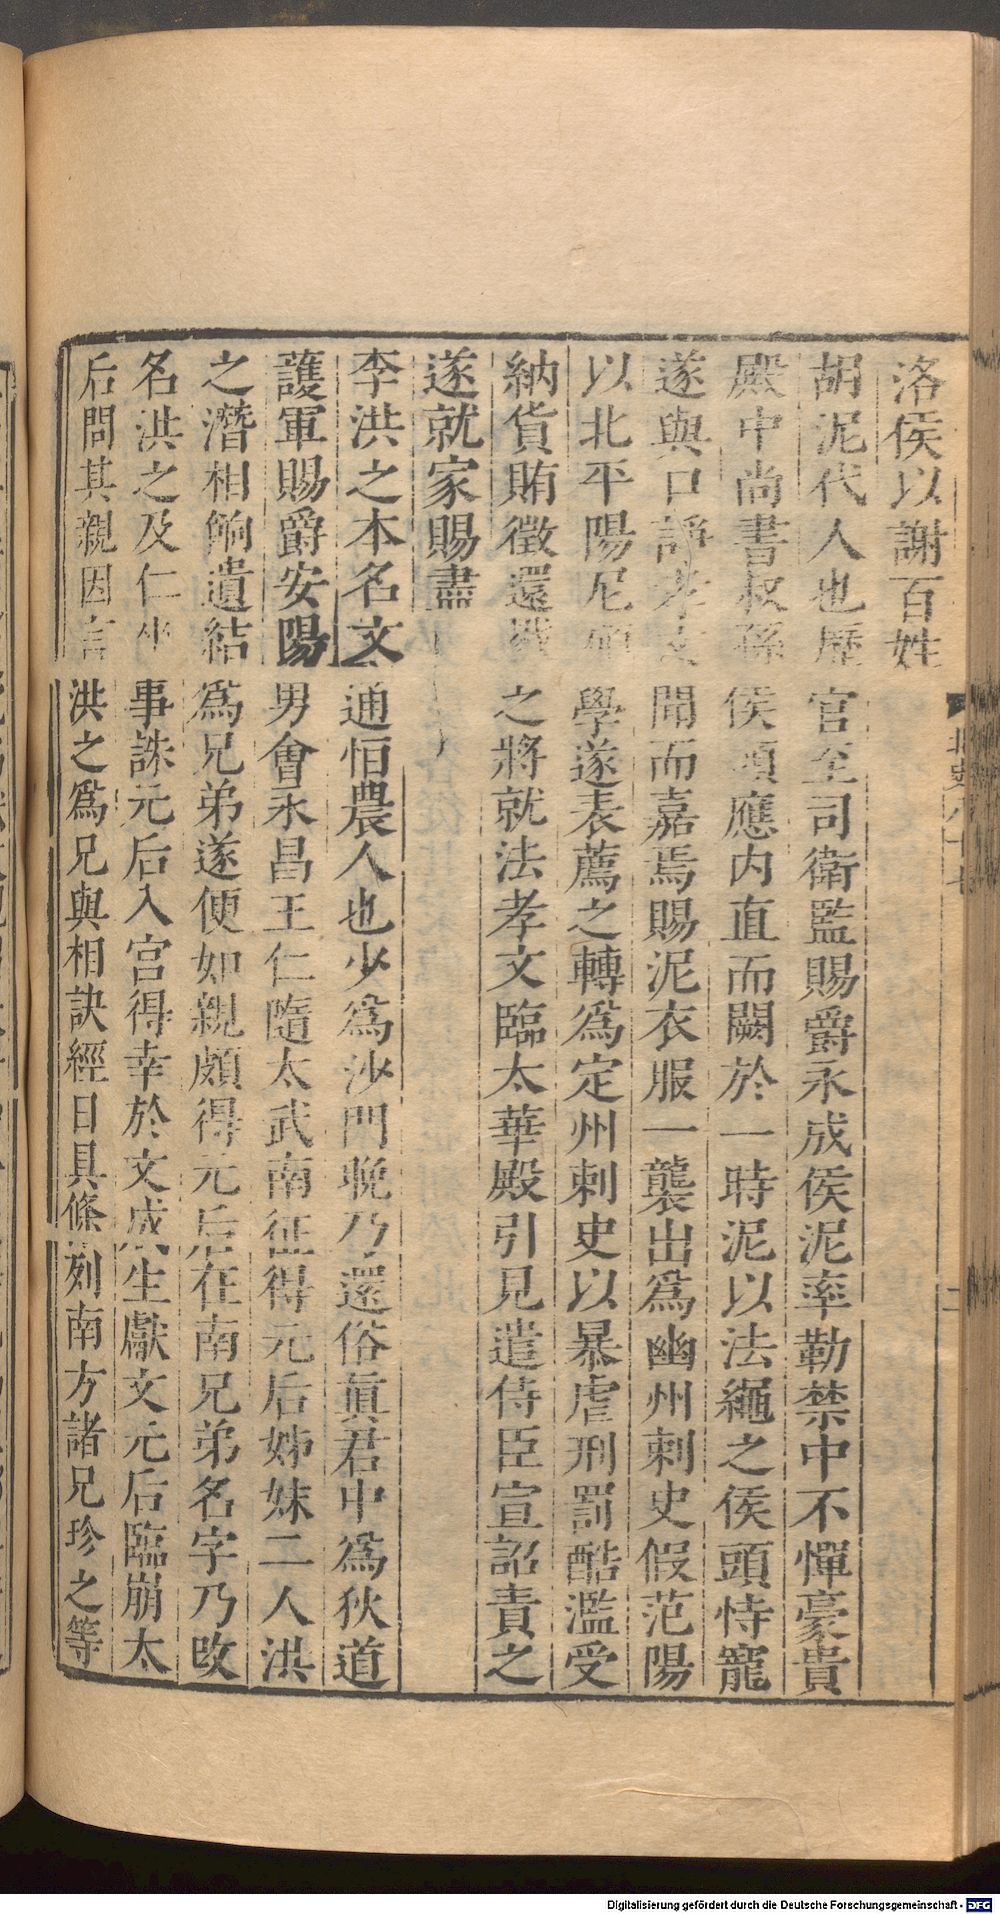 洛侯以謝百姓
胡泥代人也歷官至司衛監賜爵永成侯泥率勒禁中不憚豪貴
殿中尚書叔孫侯頭應內直而闕於一時泥以法繩之侯頭恃寵
遂與口諍孝文聞而嘉焉賜泥衣服一襲出爲幽州刺史假范陽
以北平陽尼碩學遂表薦之轉爲定州刺史以暴虐刑罰酷濫受
納貨賄徵還戮之將就法孝文臨太華殿引見遣侍臣宣詔責之
遂就家賜盡
李洪之本名文通恒農人也少爲沙門晚乃還俗眞君中爲狄道
護軍賜爵安陽男會永昌王仁隨太武南征得元后姊妹二人洪
之潛相餉遺結爲兄弟遂便如親頗得元后在南兄弟名字乃改
名洪之及仁坐事誅元后入宮得幸於文成生獻文元后臨崩太
后問其親因言洪之爲兄與相訣經日具條列南方諸兄珍之等
北史八十七
二
Digitalisierung gefördert durch die Deutsche Forschungsgemeinschaft - DFG